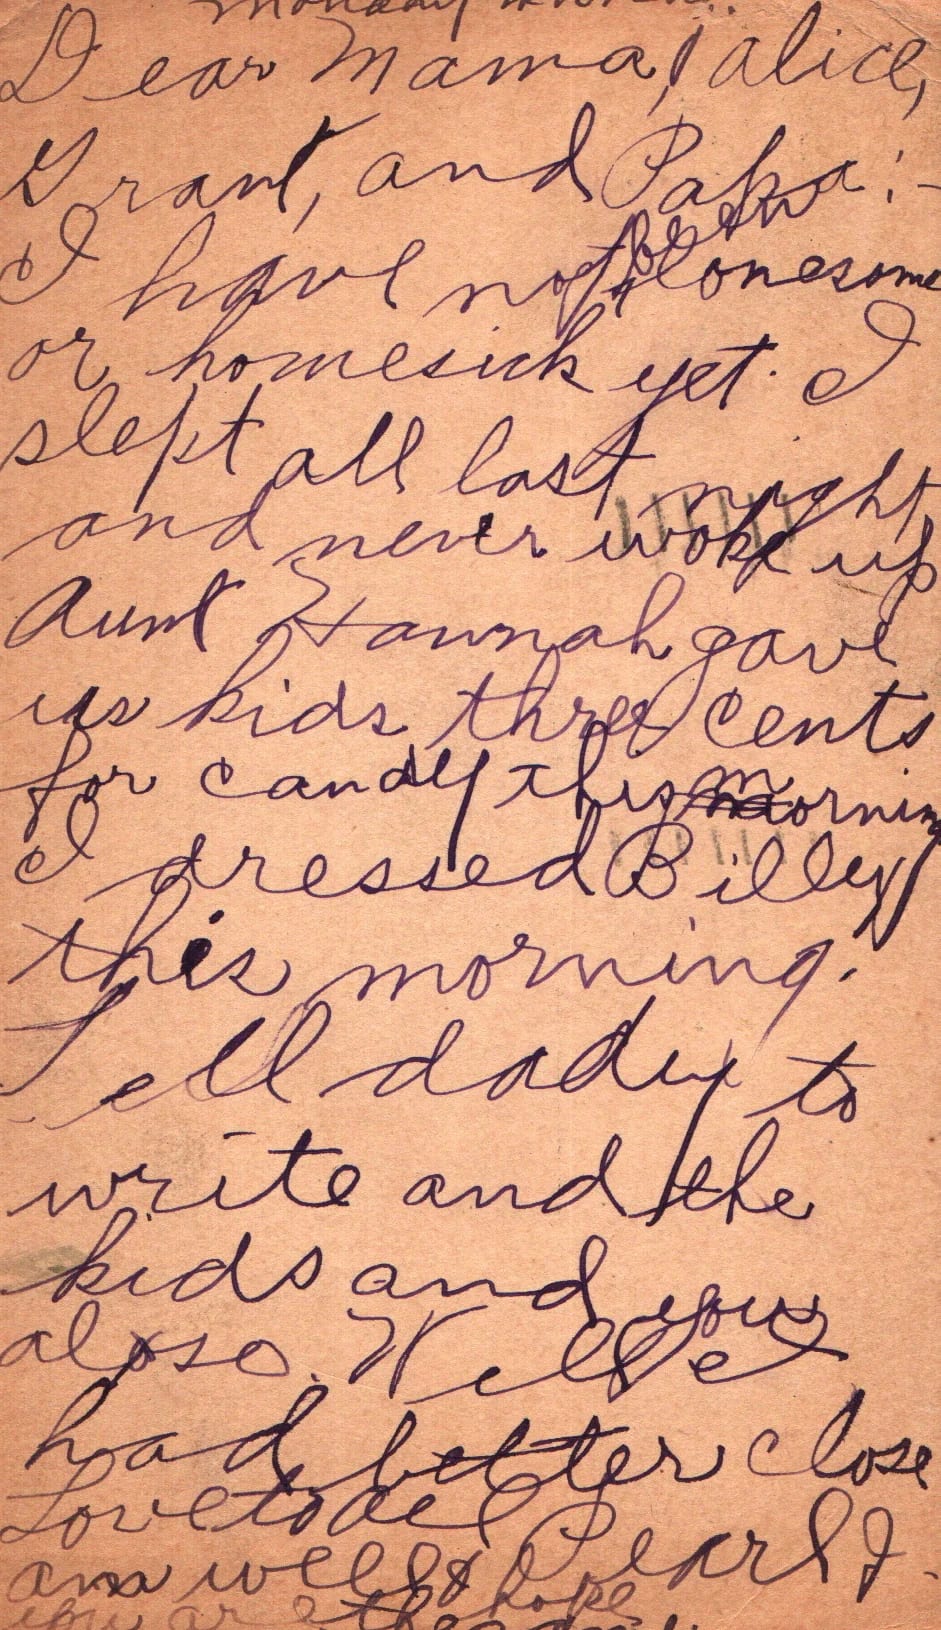 Monday morn..
Dear Mama, alice,
Grant, and Papa:-
I have not been lonesome
or homesick yet. I
slept all last night,
and never woke up
Aunt Hannah gave
us kids three cents
for candy this morning
I dressed Billy
this morning.
Tell dady to
write and the
kids and you
also. Well I
had better close
Love to all Pearl I
am well & hope
you are the same.